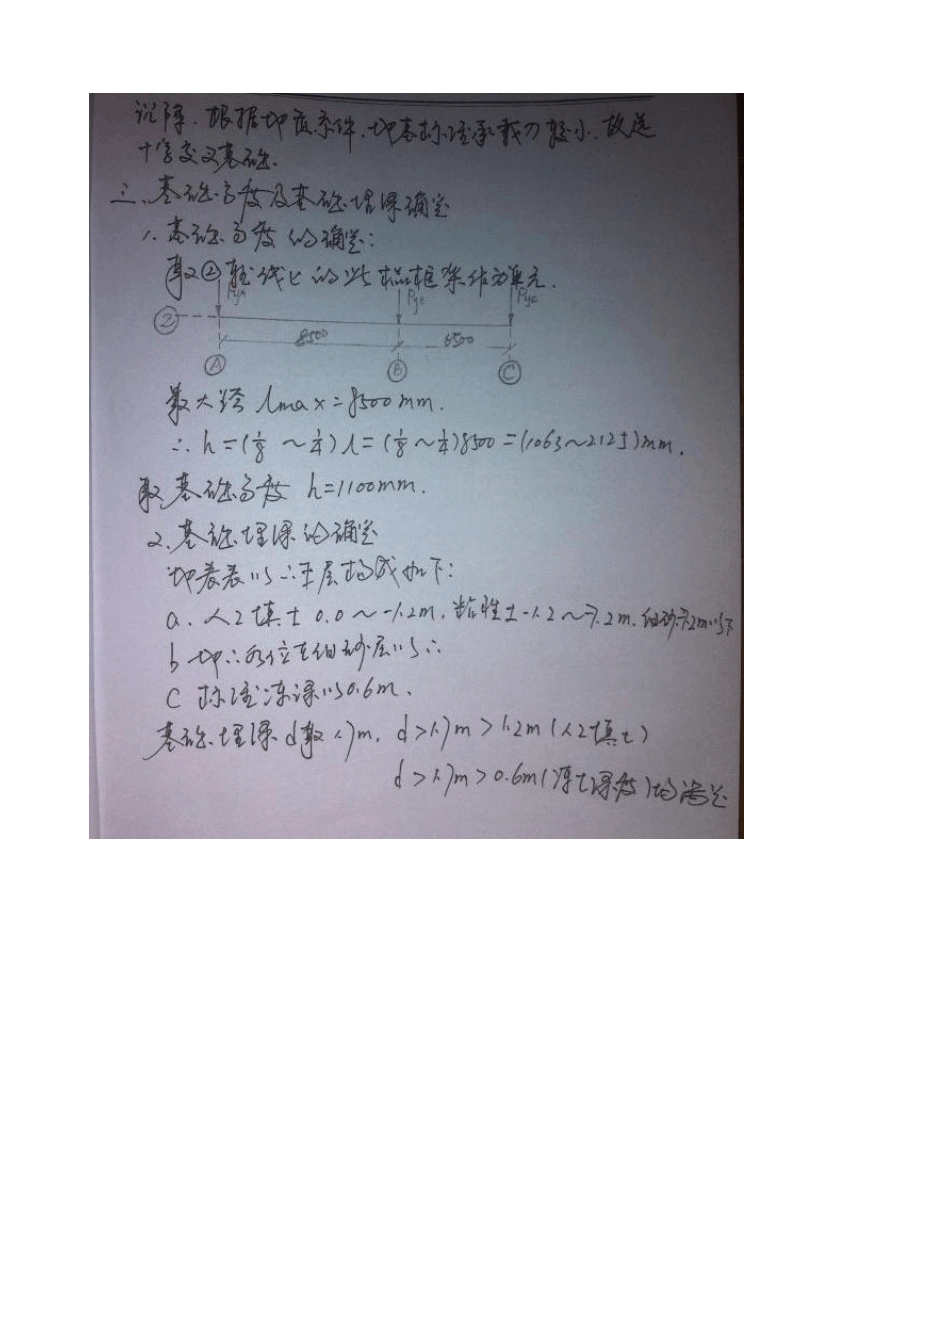 沉降. 根据地质条件. 地基标准承载力较小. 故选
十字交叉基础.
三、基础高度及基础埋深确定
1. 基础高度的确定:
取②轴线上的此榀框架作为单元.
PyA PyB PyC
② 8500 6500
Ⓐ Ⓑ Ⓒ
最大跨 lmax=8500mm.
∴ h=(1/8 ~ 1/4)l=(1/8~1/4)8500=(1063~2125)mm.
取基础高度 h=1100mm.
2. 基础埋深的确定
地表以下土层构成如下:
a. 人工填土 0.0~-1.2m. 粘性土-1.2~-7.2m. 细砂-7.2m以下
b 地下水位在细砂层以下
C 标准冻深为0.6m.
基础埋深 d取1.7m. d>1.7m>1.2m(人工填土)
d>1.7m>0.6m(冻土深度)均满足